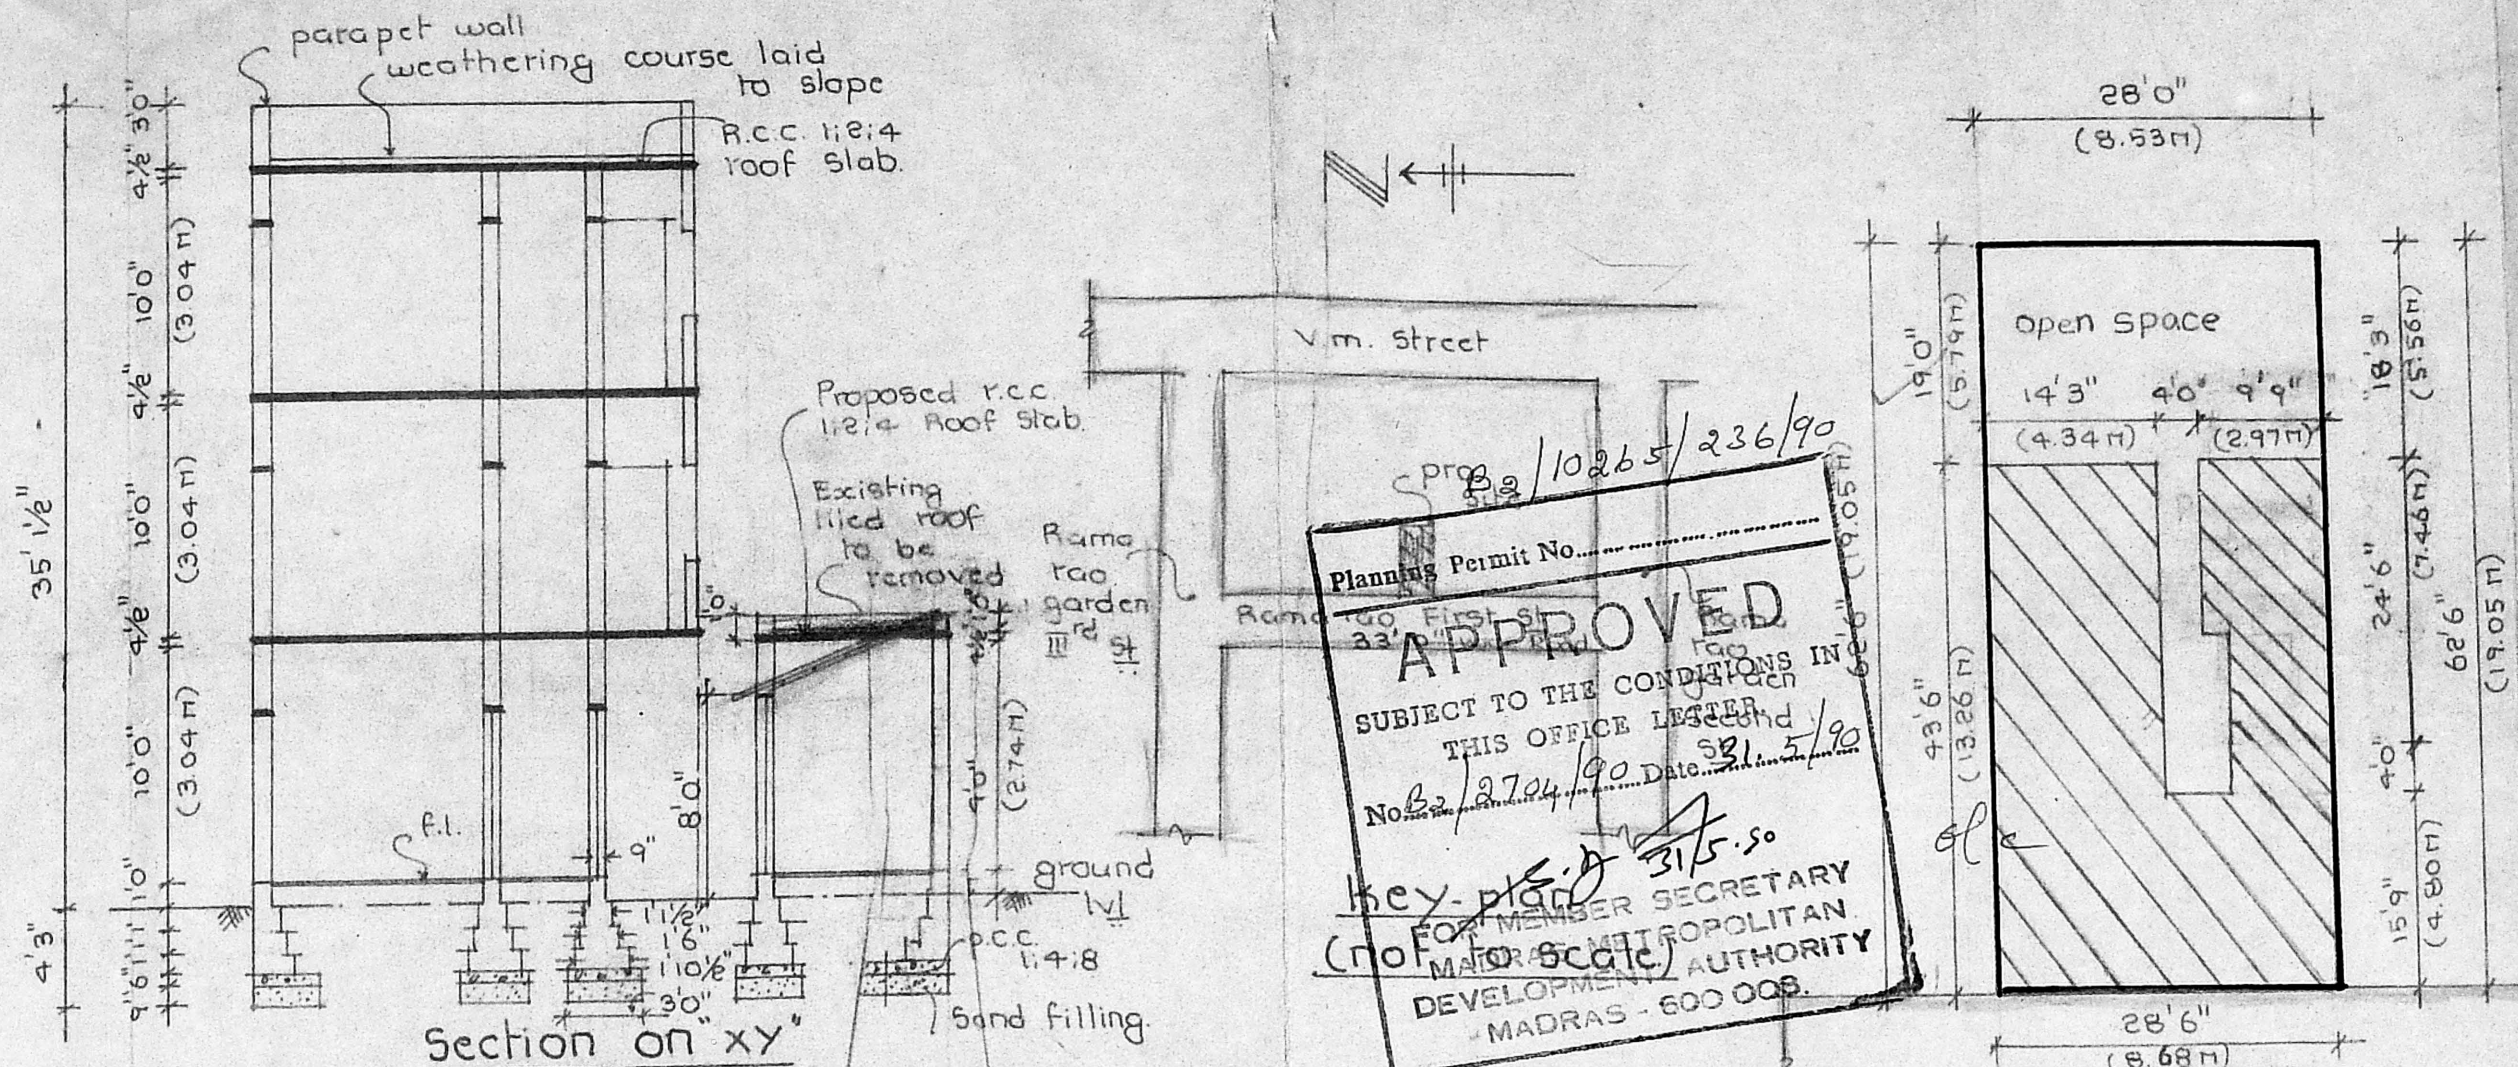 parapet wall
weathering course laid
to slope
R.C.C. 1:2:4
roof slab.
3'0"
4½"
10'0"
(3.04 m)
4½"
10'0"
(3.04 m)
4½"
10'0"
(3.04 m)
1'0"
35' 1½"
4'3"
9" 6" 1' 1'
Proposed r.c.c.
1:2:4 Roof slab.
Existing
tiled roof
to be
removed
1'0"
4½"
8'0"
(2.74 m)
f.l.
9"
ground
lvl
1'1½"
1'6"
1'10½"
3'0"
p.c.c.
1:4:8
Sand filling.
Section on "XY"
N
V.m. Street
Rama
rao
garden
IIIrd st
Rama rao First st
33'
Road
Rama
rao
garden
Second
St
Key-plan
(not to scale)
B2/10265/236/90
Planning Permit No.
APPROVED
SUBJECT TO THE CONDITIONS IN
THIS OFFICE LETTER.
No B2/2704/90 Date 31.5/90
31/5.90
FOR MEMBER SECRETARY
MADRAS METROPOLITAN
DEVELOPMENT AUTHORITY
MADRAS - 600 008.
28'0"
(8.53m)
open space
14'3" 4'0" 9'9"
(4.34m) (2.97m)
19'0"
(5.79m)
43'6"
(13.26 m)
62'6" (19.05 m)
18'3"
(5.56m)
24'6"
(7.46m)
4'0"
15'9"
(4.80m)
62'6"
(19.05 m)
28'6"
(8.68m)